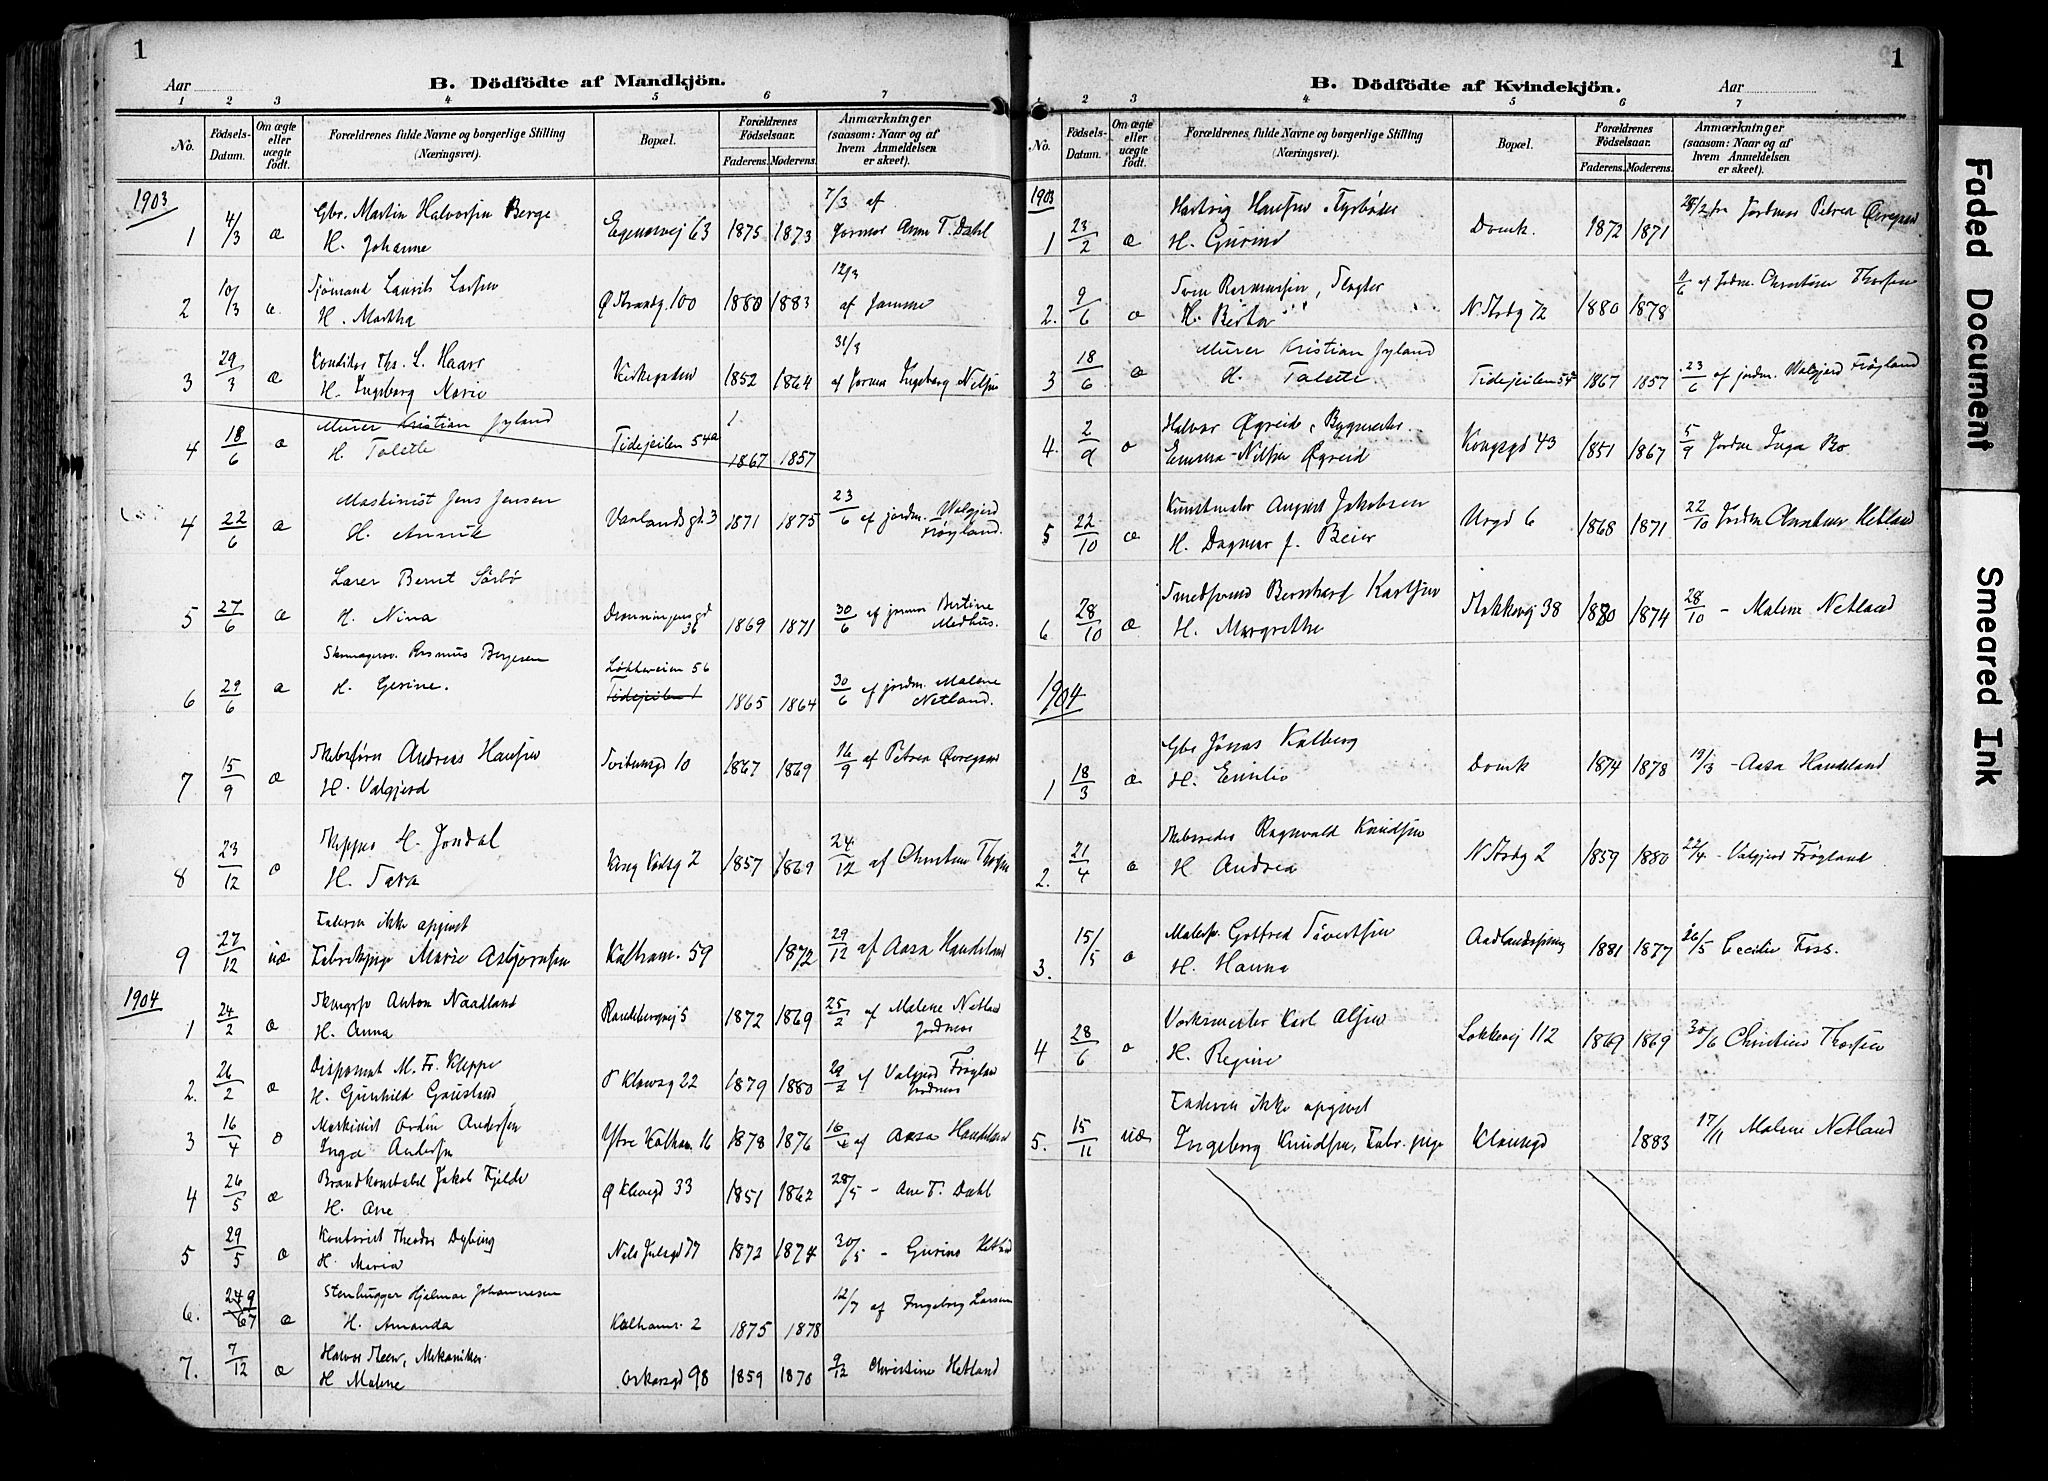 1
Aar
B. Dödfödte af Mandkjön.
1 2 3 4 5 6 7
No.
Födsels-Datum.
Om ægte eller uægte födt.
Forældrenes fulde Navne og borgerlige Stilling (Næringsvei).
Bopæl.
Forældrenes Födselsaar.
Faderens. Moderens.
Anmærkninger (saasom: Naar og af hvem Anmeldelsen er skeet).
1903
7/3 af
Gbr. Martin Halvorsen Berge
1 4/3 æ H. Johanne Egenesvej 63 1875 1873 Jormor Ane T. Dahl
Sjömand Laurits Larsen 12/3
2 10/3 æ H. Martha Ø Strandg. 100 1880 1883 af samme
Konditor Ths. L. Haarr 31/3
3 29/3 æ H. Ingeborg Marie Kirkegaden 1852 1864 af Jormor Ingeborg Nilsen
Murer Kristian Jyland
4 18/6 æ H. Talette Tidejeilen 54a 1867 1857
Maskinist Jens Jensen
4 22/6 æ H. Annik Varlandsgd. 3 1871 1875 23/6 af jordm. Walgjerd Frøyland.
Lærer Bernt Sørbö
5 27/6 æ H. Nina Dronningensgd 36 1869 1871 30/6 af jormor Bertine Medhus.
Skomagersv. Rasmus Bergesen Løkkeveien 56
6 29/6 æ H. Gesine. Tidejeilen 1 1865 1864 30/6 af jordm. Malene Netland.
Skibsfører Andreas Hansen
7 15/9 æ H. Valgjerd 10 1867 1869 16/9 af Petrea Øvregaard
Skipper H. Jondal
8 23/12 æ H. Kong Karlsg 2 1857 1869 24/12 af Christine Thorsen
Faderen ikke opgivet
9 27/12 uæ Fabrikpige Marie Asbjørnsen Kalham. 59 1872 29/12 af Aasa Haudeland
1904
Anton Naadland
1 24/2 æ H. Anna Randebergvej 5 1872 1869 25/2 af Malene Netland Jordmor
Disponent M. Fr. Kleppe
2. 26/2 æ H. Gunhild Gausland 22 1879 1880 29/2 af Valgjerd Frøyland Jordmor
Maskinist Ordin Andersen
3 16/4 æ Inga Andersen Ytre Kalham. 16 1878 1876 16/4 af Aasa Haudeland
Brandkonstabel Jakob Fjelde
4 26/5 æ H. Ane Ø Klevegd 33 1851 1862 28/5 - Ane T. Dahl
Kontorist Theodor Dybing
5 29/5 æ H. Maria Nils Juelsgd 77 1872 1874 30/5 - Gurine Hetland
Stenhugger Hjalmar Johannesen
6. 9/7 æ H. Amanda Kalhamr. 2 1875 1878 12/7 af Ingeborg Larsen
Halvor Steen, Mekaniker
7. 7/12 æ H Malene Oskarsgd 98 1859 1870 9/12 Christine Hetland
1
B. Dödfödte af Kvindekjön.
Aar
1 2 3 4 5 6 7
No.
Födsels-Datum.
Om ægte eller uægte födt.
Forældrenes fulde Navne og borgerlige Stilling (Næringsvei).
Bopæl.
Forældrenes Födselsaar.
Faderens. Moderens.
Anmærkninger (saasom: Naar og af hvem Anmeldelsen er skeet).
1903
Hartvig Hansen, Fyrbøder
1 23/2 æ H. Gurine Domk. 1872 1871 28/2 fra Jordmor Petrea Øvregaard
Sven Rasmussen, Slagter
2. 9/6 æ H. Berta N. Strdg 72 1880 1878 11/6 af Jordm. Christine Thorsen
Murer Kristian Jyland
3 18/6 æ H. Talette. Tidejeilen 54a 1867 1857 23/6 af jordm. Walgjerd Frøyland
Halvor Øgreid, Bygmester.
4. 2/9 æ Emma Nilsen Øgreid Kongsgd 43 1851 1867 5/9 Jordm Inga Bo.
Kunstmaler August Jakobsen
5 22/10 æ H. Dagmar J. Beier Urgd 6 1868 1871 22/10 Jordm Christine Hetland
Smedsvend Bernhard Karlsen
6 28/10 æ H. Margrethe Stokkavej 38 1880 1874 28/10 - Malene Netland
1904
Gbr Jonas Kalberg
1 18/3 æ H. Emilie Domk 1874 1878 19/3 - Aasa Haudeland
Skibsreder Ragnvald Knudsen
2. 21/4 æ H Andrea N Strdg 2 1859 1880 22/4 - Valgjerd Frøyland
Malersv. Gotfred Sivertsen
3. 15/5 æ H. Hanna 1881 1877 26/5 Cecilie Foss.
Værksmester Karl Olsen
4 28/6 æ H. Regine Løkkevej 112 1869 1869 30/6 Christine Thorsen
Faderen ikke opgivet
5. 15/11 uæ Ingeborg Knudsen, Fabr. pige Klausegd 1883 17/11 Malene Netland
Faded Document
Smeared Ink